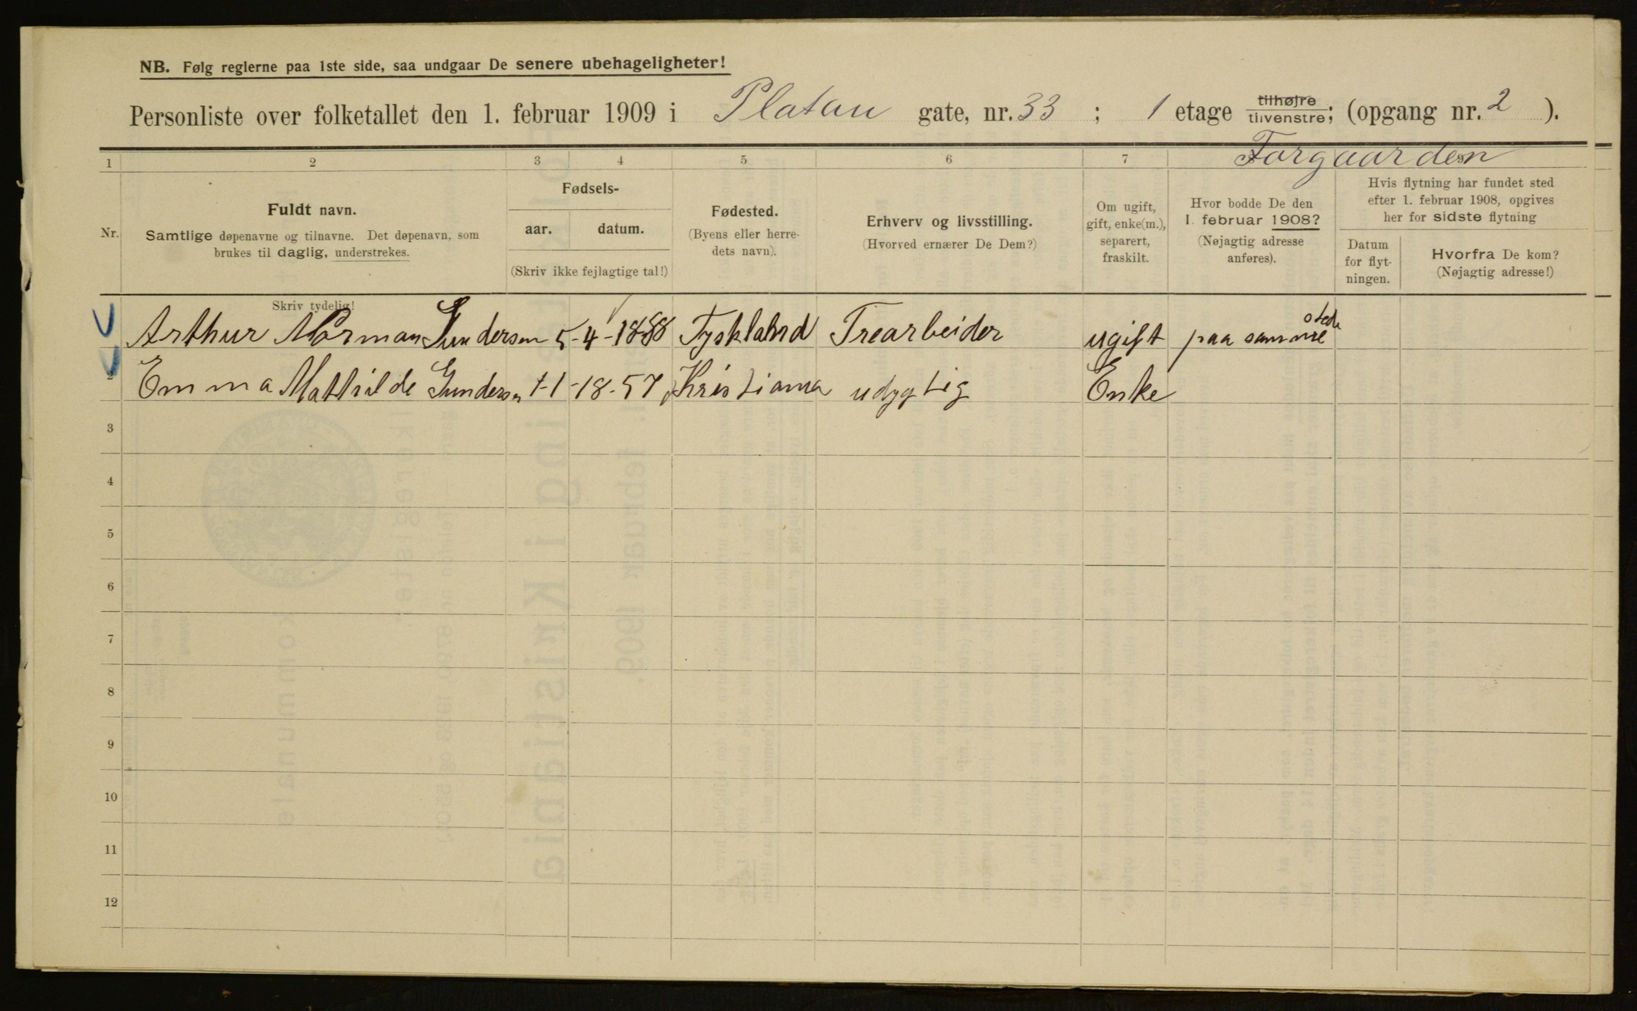 NB. Følg reglerne paa 1ste side, saa undgaar De senere ubehageligheter!
Personliste over folketallet den 1. februar 1909 i Platau gate, nr. 33 ; 1 etage tilhøjre tilvenstre; (opgang nr. 2 ).
Forgaarden
1 2 3 4 5 6 7 8
Nr.
Fuldt navn.
Samtlige døpenavne og tilnavne. Det døpenavn, som
brukes til daglig, understrekes.
Skriv tydelig!
Fødsels-
aar. datum.
(Skriv ikke fejlagtige tal!)
Fødested.
(Byens eller herre-
dets navn).
Erhverv og livsstilling.
(Hvorved ernærer De Dem?)
Om ugift,
gift, enke(m.),
separert,
fraskilt.
Hvor bodde De den
1. februar 1908?
(Nøjagtig adresse
anføres).
Hvis flytning har fundet sted
efter 1. februar 1908, opgives
her for sidste flytning
Datum
for flyt-
ningen.
Hvorfra De kom?
(Nøjagtig adresse!)
Arthur Norman Gundersen 5-4-1888 Tyskland Trearbeider ugift paa samme sted
2 Emma Mathilde Gundersen 1-18-57 Kristiania udygtig Enke
3
4
5
6
7
8
9
10
11
12